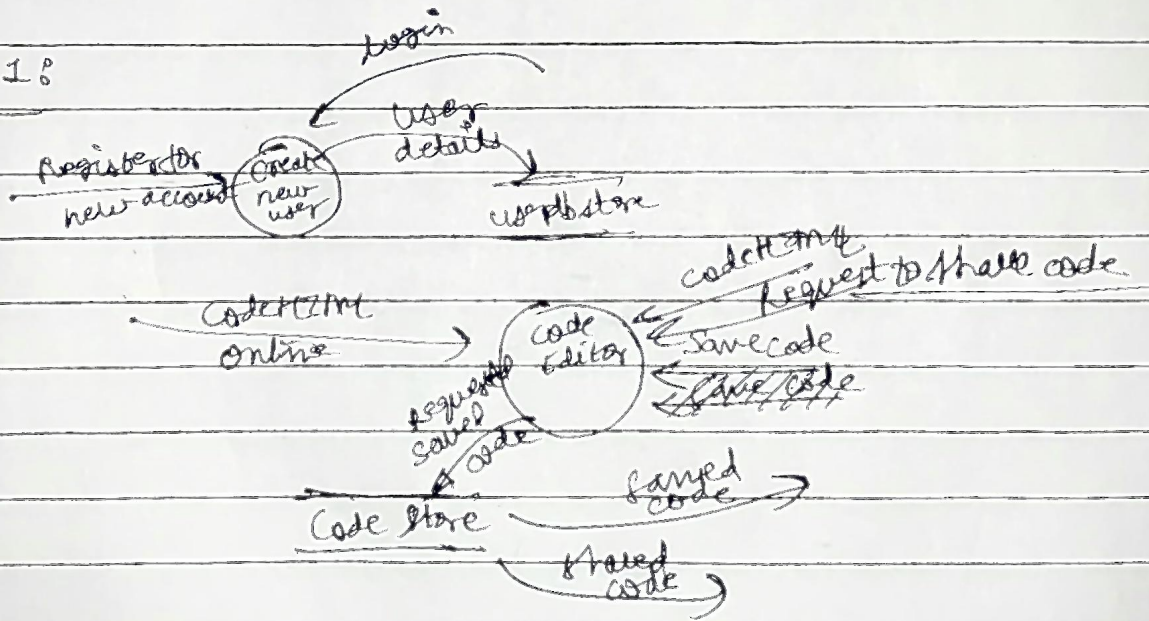 Login
1:
User
details
Register for
new account
Create
new
user
userDb store
code HTML
Request to share code
Code HTML
online
Code
Editor
Save code
Save code
Request
saved
code
Code Store
Saved
code
shared
code